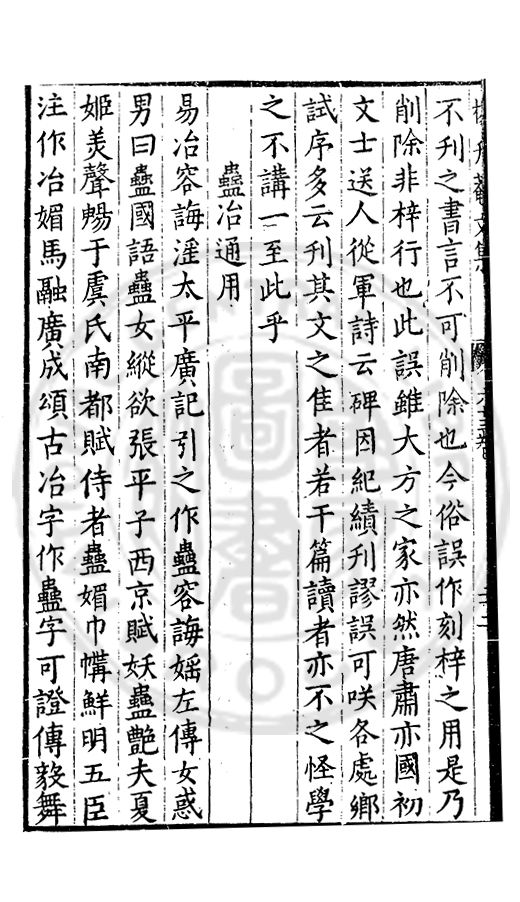 不刋之書言不可削除也今俗誤作刻梓之用是乃
削除非梓行也此誤雖大方之家亦然唐肅亦國初
文士送人從軍詩云碑因紀績刋謬誤可咲各處鄉
試序多云刋其文之佳者若干篇讀者亦不之怪學
之不講一至此乎
蠱冶通用
易冶容誨淫太平廣記引之作蠱容誨婬左傳女惑
男曰蠱國語蠱女縱欲張平子西京賦妖蠱艷夫夏
姬美聲暢于虞氏南都賦侍者蠱媚巾幘鮮明五臣
注作冶媚馬融廣成頌古冶字作蠱字可證傅毅舞